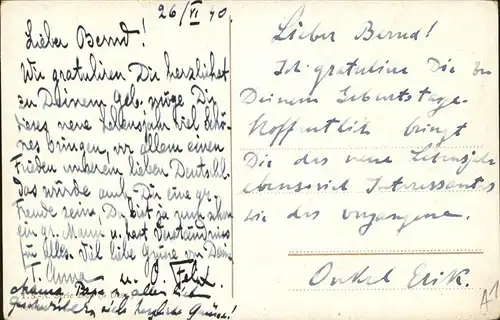 26/VI 40.
Lieber Bernd!
Wir gratulieren Dir herzlichst
zu Deinem Geb. möge Dir
dieses neue Lebensjahr viel Schö-
nes bringen, vor allem einen
Frieden unserem lieben Deutschl.
Das würde auch Dir eine gr.
Freude sein. Du bist ja nun schon
ein gr. Mann u. hast Verständniss
für alles. Viel liebe Grüsse von Dein.
T. Anna u. O. Felix.
Mama, Papa u. allen lb.
viele herzliche Grüsse!
Lieber Bernd!
Ich gratuliere Dir zu
Deinem Geburtstage.
Hoffentlich bringt
Dir das neue Lebensjahr
ebensoviel Interessantes
wie das vergangene.
Onkel Erik.
A1